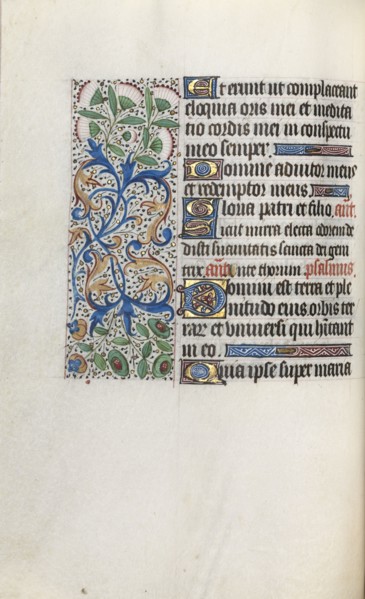 Et erunt ut complaceant
eloquia oris mei et medita
tio cordis mei in conspectu
meo semper.
Domine adiutor meus
et redemptor meus
Gloria patri et filio. ant.
Sicut mirra electa odorem de
disti suavitatis sancta dei geni
trix. ant. ante thorum psalmus.
Domini est terra et ple
nitudo eius. orbis ter
rar et universi qui hitant
in eo.
Quia ipse super maria